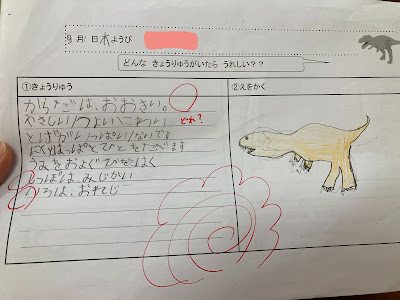 9月1日木ようび
どんな きょうりゅうがいたら うれしい??
①きょうりゅう
②えをかく
からだは、おおきい。
やさしい/つよい/こわい
どれ?
とげがいっぱい/ないです
にくとはっぱとひとをたべます
うみをおよぐひせはく
しっぽは、みじかい
いろは、おれじ